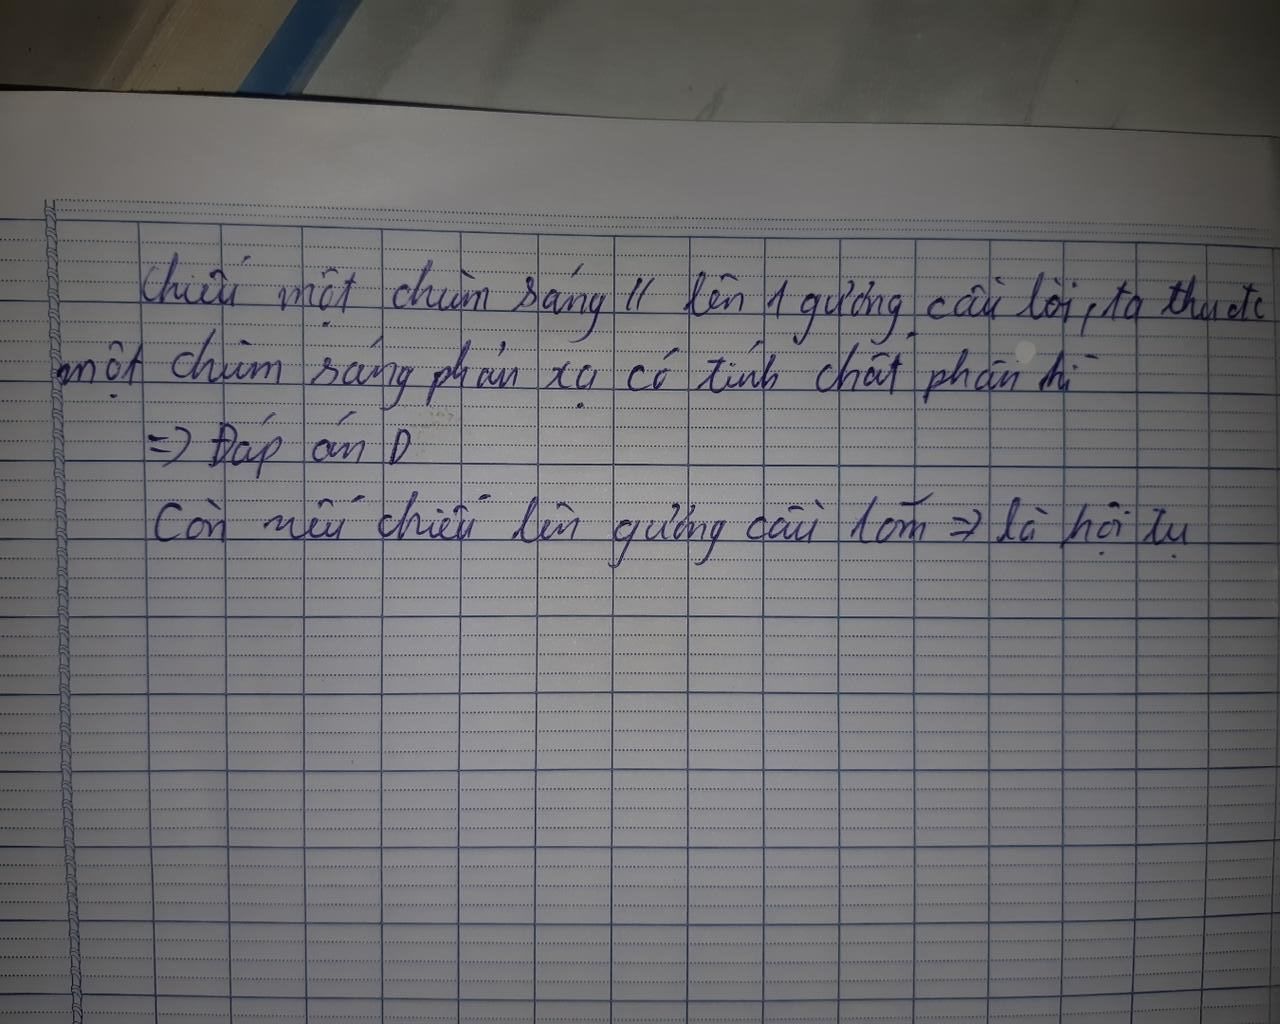 Chiếu một chùm sáng // lên 1 gương cầu lồi, ta thu đc
một chùm sáng phản xạ có tính chất phân kì
=> Đáp án D
Còn nếu chiếu lên gương cầu lõm => là hội tụ